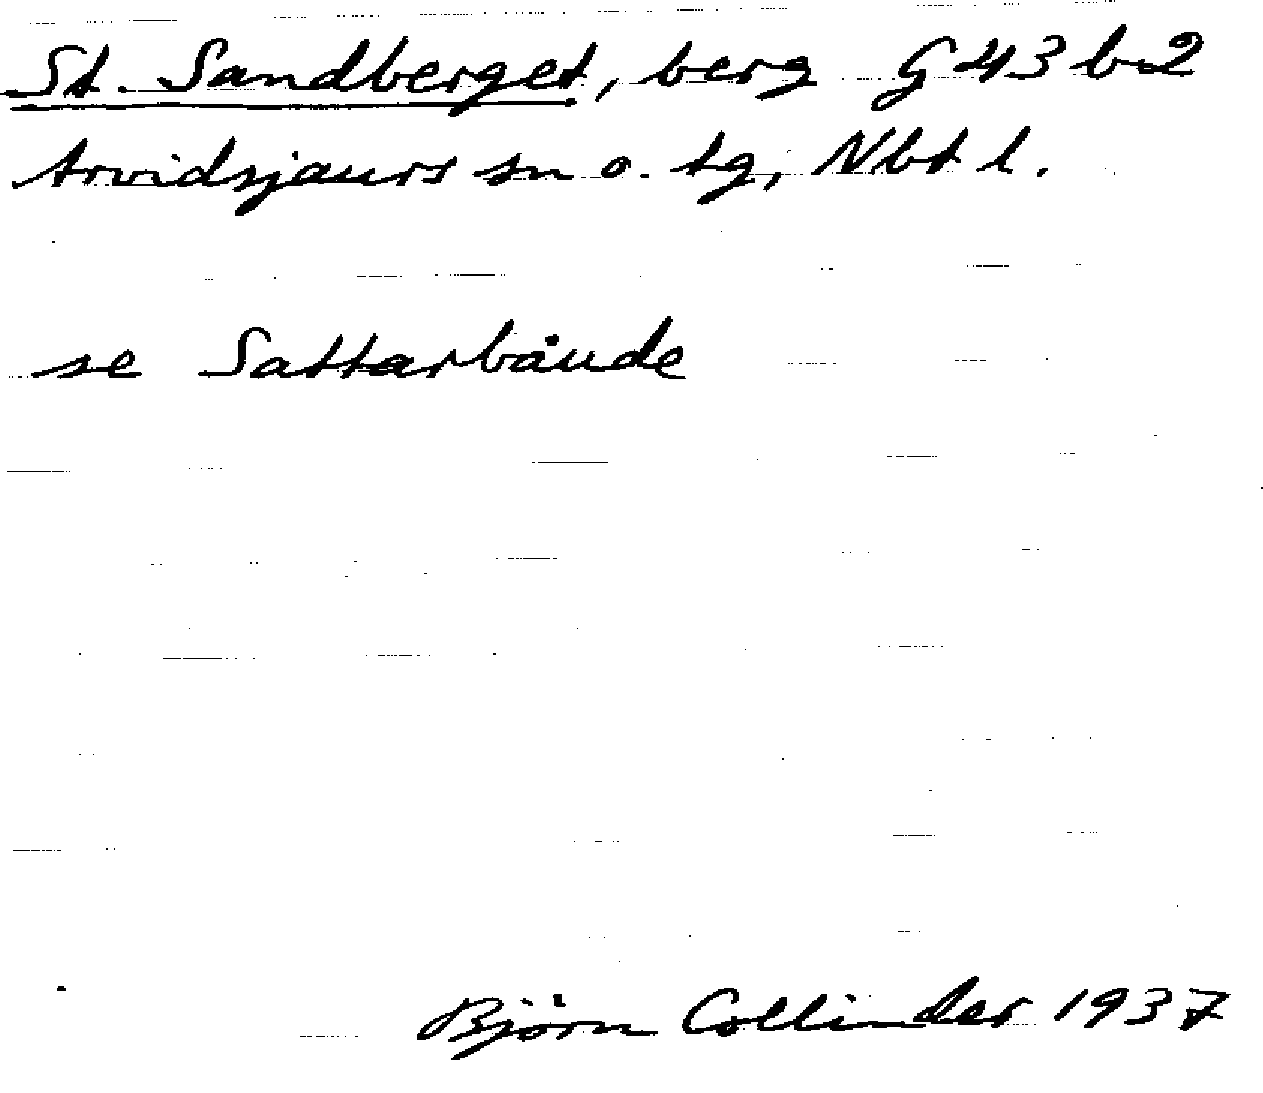 St. Sandberget, berg G43b2
Arvidsjaurs sn o. tg, Nbt l.
se Sattarbäude
Björn Collinder 1937